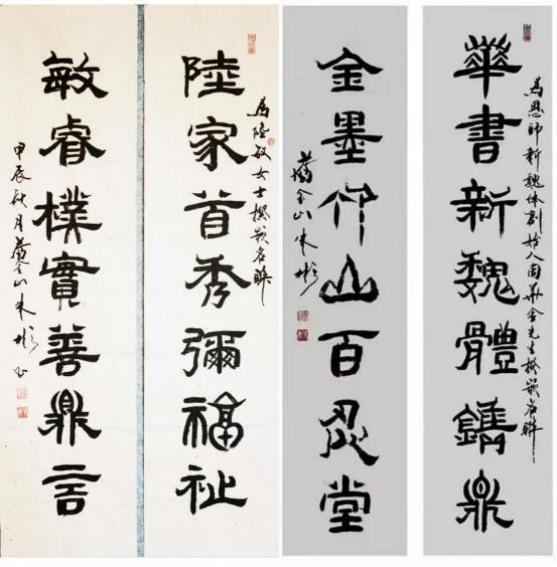 為恩師新魏体创始人周華金先生撰嵌名聯
華書新魏體鐫鼎
金墨竹山百忍堂
舊金山朱彬
為陸敏女士撰嵌名聯
陸家首秀彌福祉
敏睿樸實善鼎言
甲辰秋月舊金山朱彬书